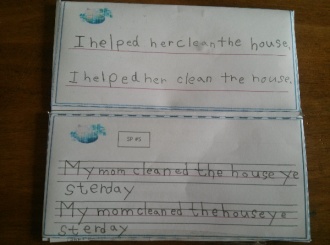 I helped her clean the house.
I helped her clean the house.
My mom cleaned the house ye
sterday
My mom cleaned the house ye
sterday